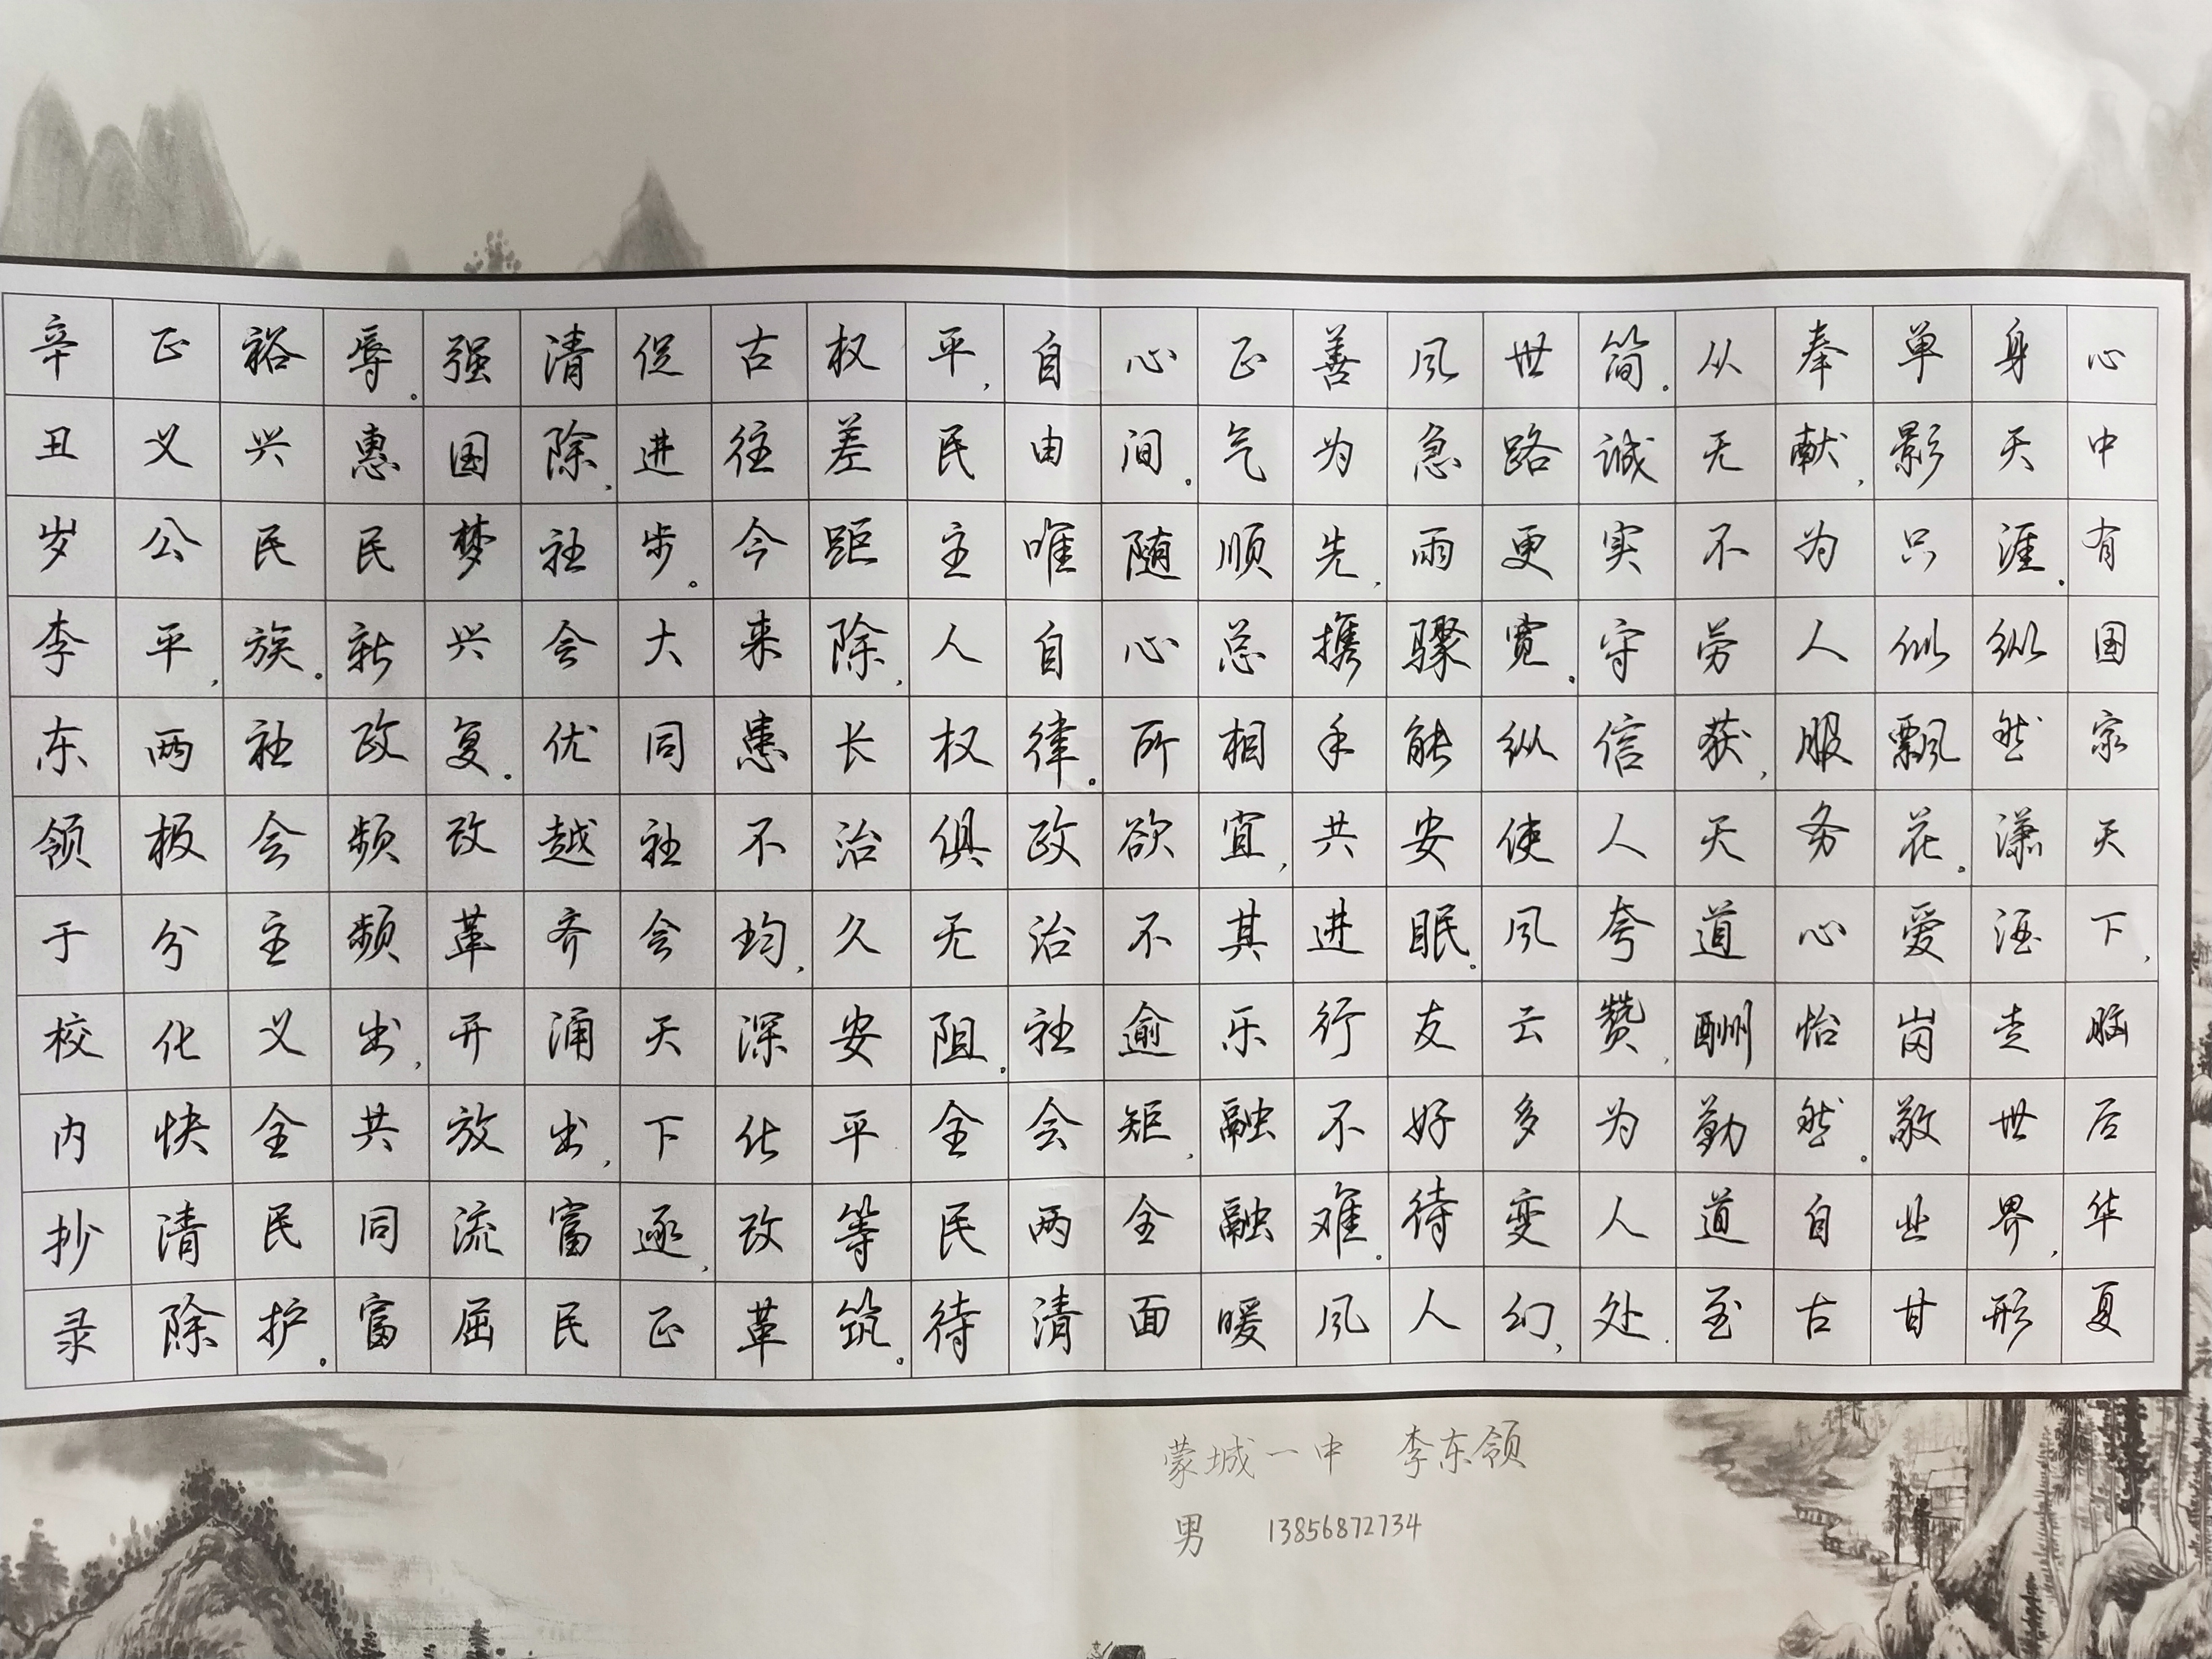 心中有国家天下,脑后华夏
身天涯.纵然潇洒走世界,形
单影只似飘花。爱岗敬业甘
奉献,为人服务心怡然。自古
从无不劳获,天道酬勤道至
简.诚实守信人夸赞,为人处.
世路更宽。纵使风云多变幻,
风急雨骤能安眠。友好待人
善为先,携手共进行不难。风
正气顺总相宜,其乐融融暖
心间。随心所欲不逾矩,全面
自由唯自律。政治社会两清
平,民主人权俱无阻.全民待
权差距除,长治久安平等筑。
古往今来患不均,深化改革
促进步。大同社会天下逐,正
清除,社会优越齐涌出,富民
强国梦兴复。改革开放流屈
辱。惠民新政频频出,共同富
裕兴民族。社会主义全民护。
正义公平,两极分化快清除
辛丑岁李东领于校内抄录
蒙城一中 李东领
男 13856872734